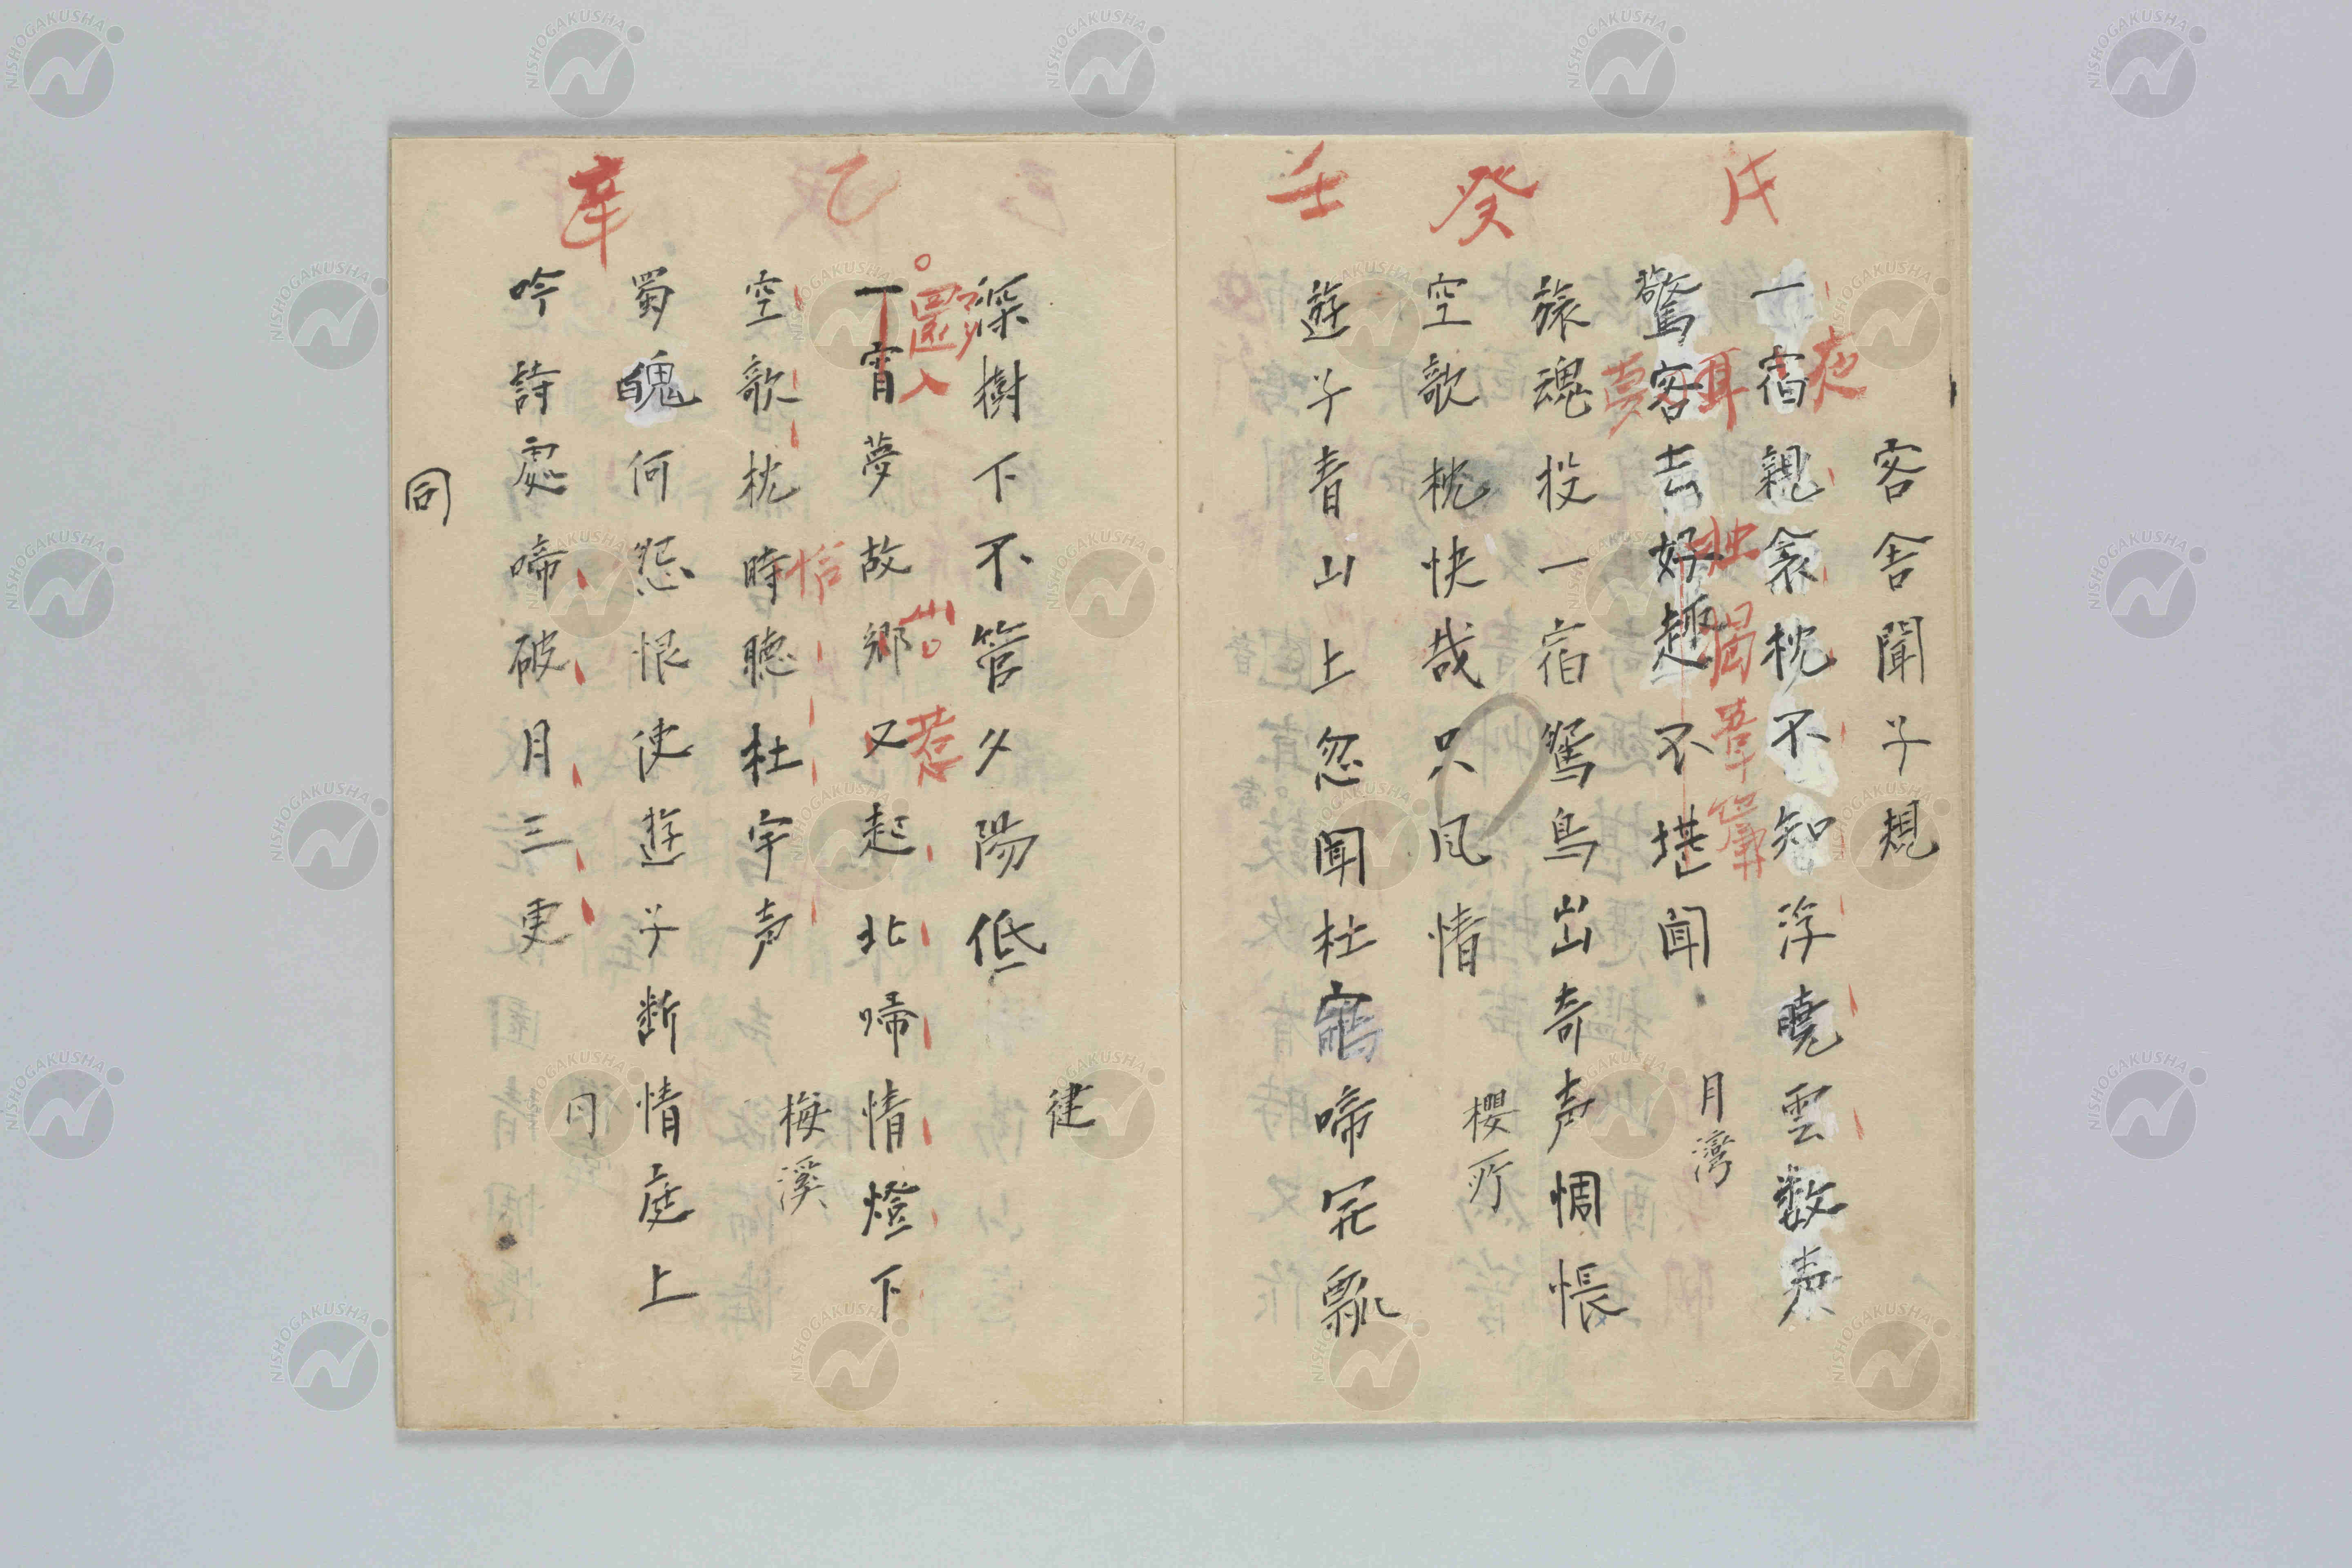 客舎聞子規
戊
一宿親衾枕不知浮曉雲数声
夜
驚客去好趣不堪聞
耳
夢
月湾
癸
旅魂投一宿鴛鳥出奇声惆悵
空歌枕快哉只风情
櫻所
壬
遊子青山上忽聞杜鵑啼宛瓢
深樹下不管夕陽低
建
乙
一宵夢故郷又起北啼情燈下
園入
山
惹
空歌枕時聴杜宇声
恰
梅溪
辛
蜀魄何怨恨使遊子断情庭上
吟詩處啼破月三更
同
同
NISHOGAKUSHA